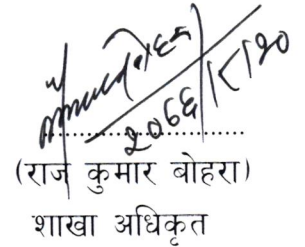 २०६६/८/२०
....................
(राज कुमार बोहरा)
शाखा अधिकृत